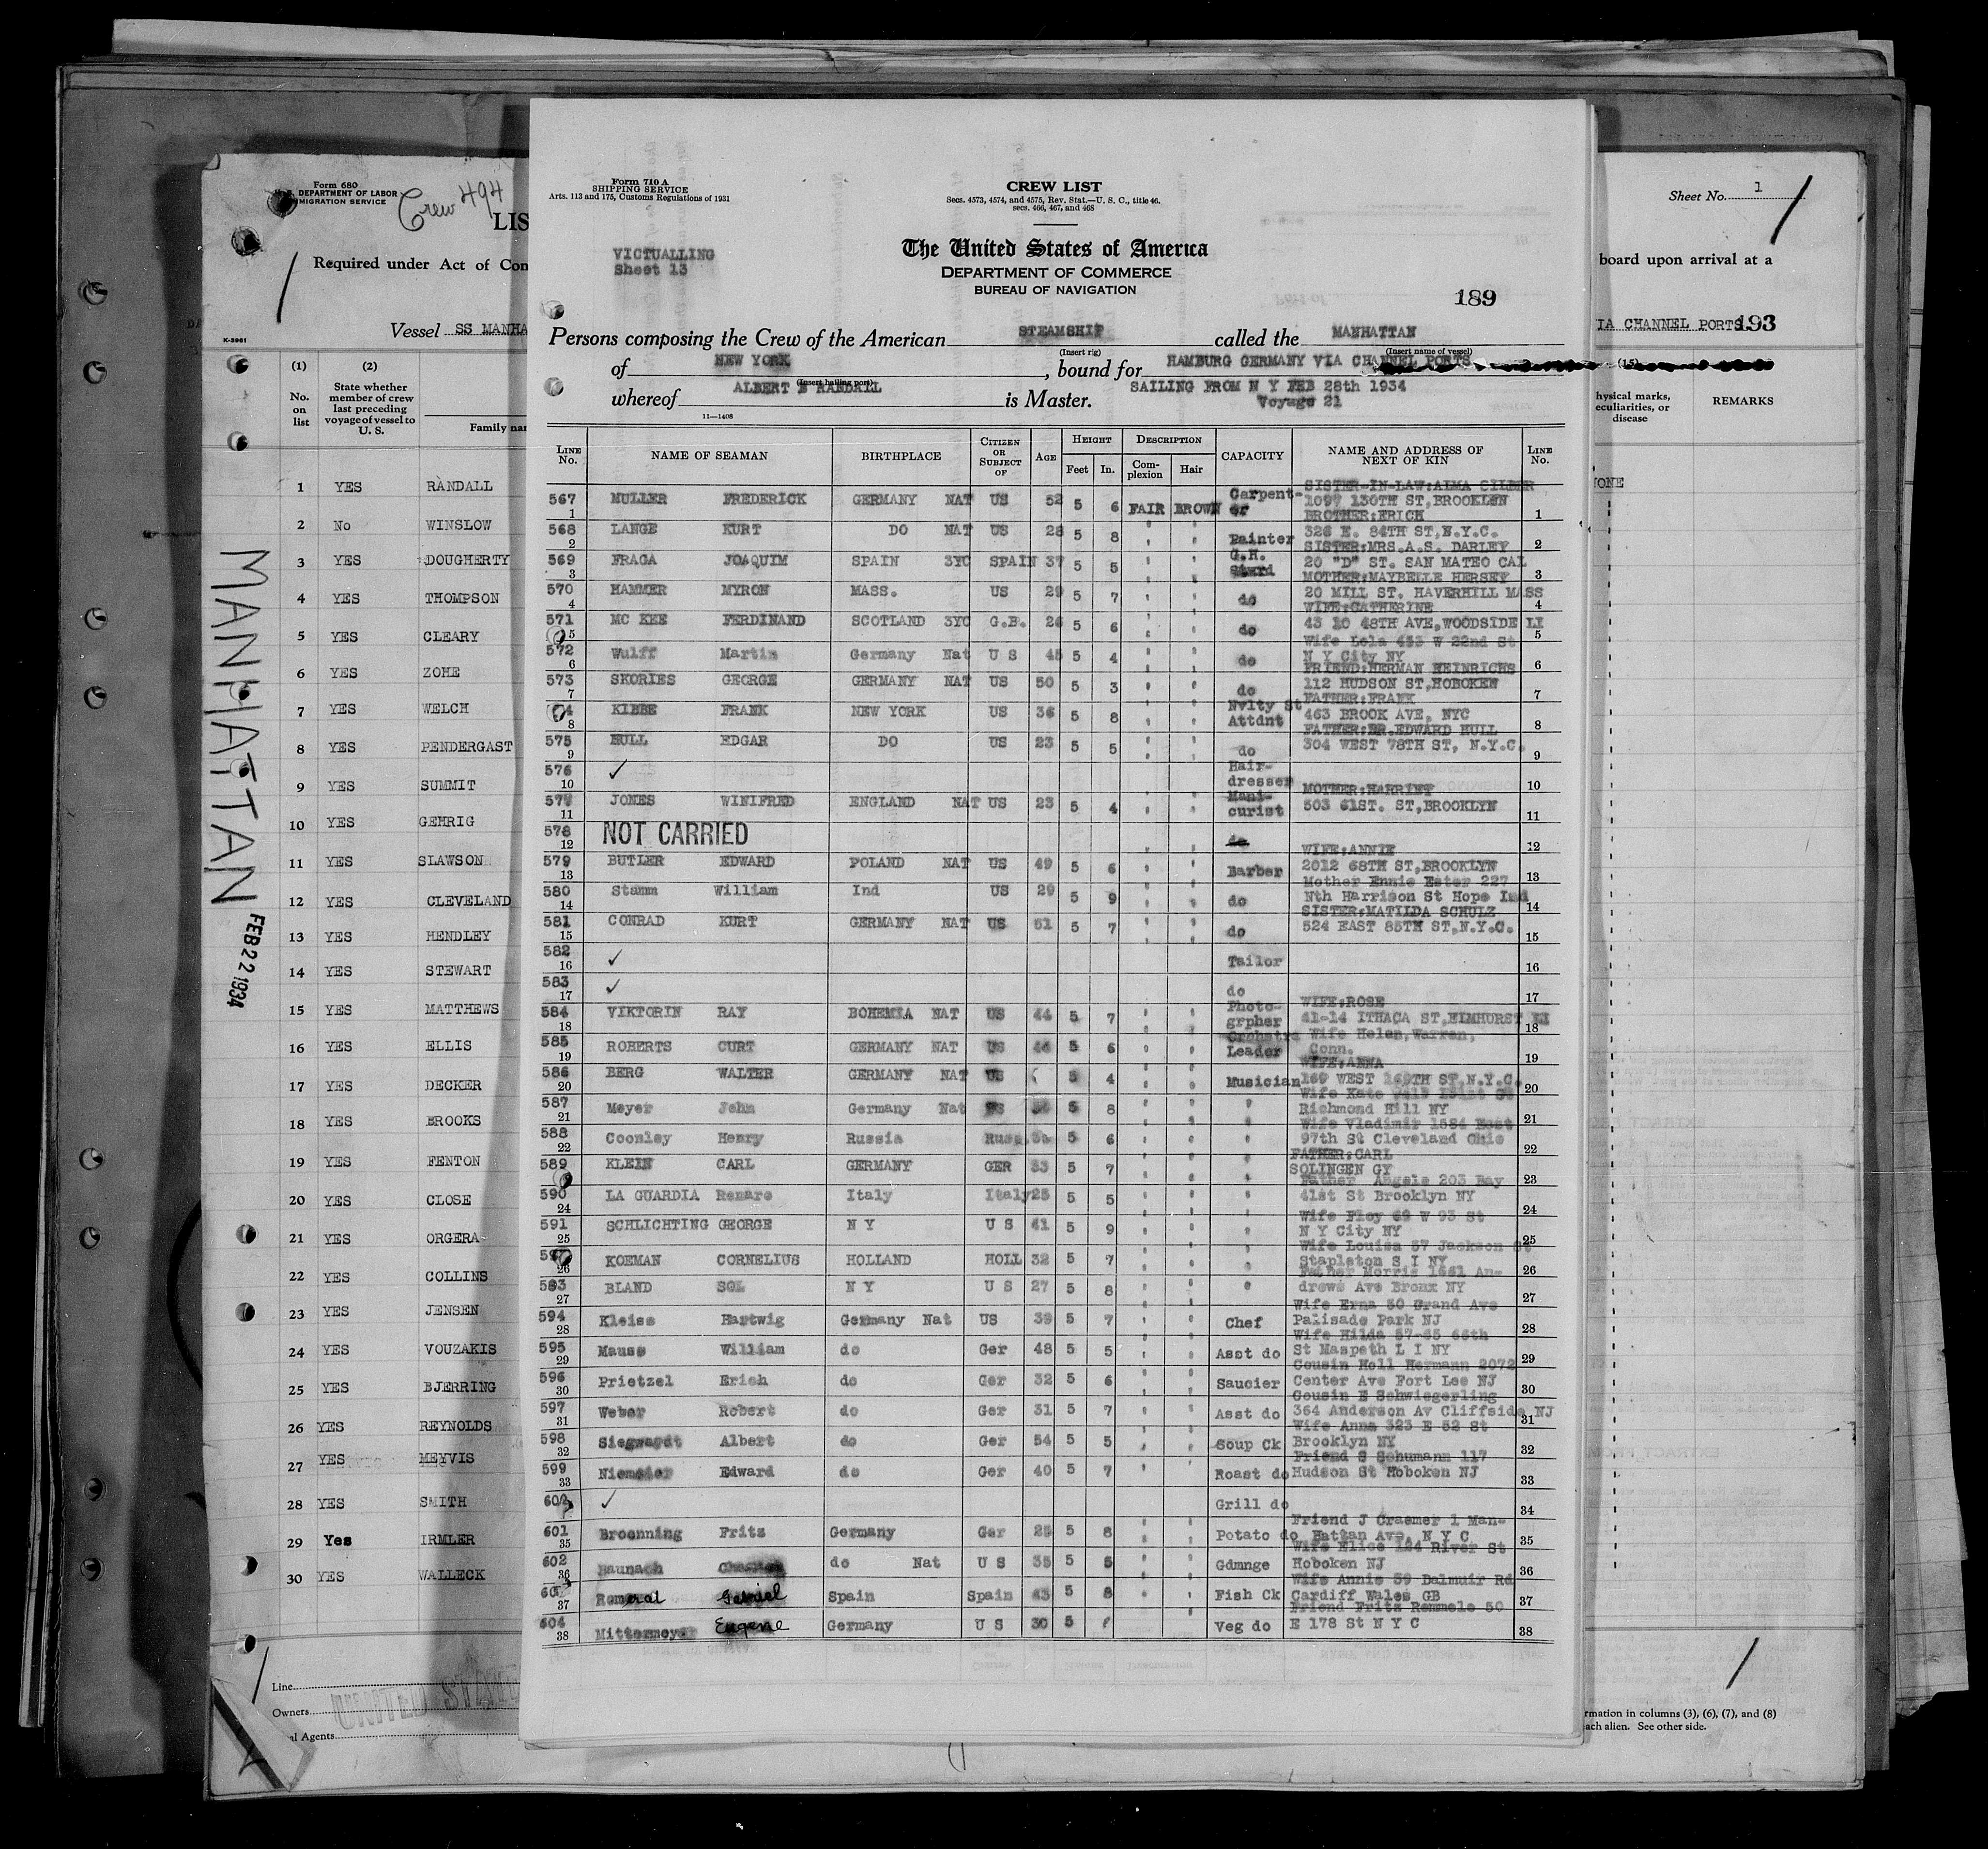 Form 680
DEPARTMENT OF LABOR
IMMIGRATION SERVICE
Crew 494
LIS
Required under Act of Con
Vessel SS MANHA
K-3961
(1) (2)
No. on list
State whether member of crew last preceding voyage of vessel to U. S.
Family nam
1 YES RANDALL
2 No WINSLOW
3 YES DOUGHERTY
4 YES THOMPSON
5 YES CLEARY
6 YES ZOHE
7 YES WELCH
8 YES PENDERGAST
9 YES SUMMIT
10 YES GEHRIG
11 YES SLAWSON
12 YES CLEVELAND
13 YES HENDLEY
14 YES STEWART
15 YES MATTHEWS
16 YES ELLIS
17 YES DECKER
18 YES BROOKS
19 YES FENTON
20 YES CLOSE
21 YES ORGERA
22 YES COLLINS
23 YES JENSEN
24 YES VOUZAKIS
25 YES BJERRING
26 YES REYNOLDS
27 YES MEYVIS
28 YES SMITH
29 Yes IRMLER
30 YES WALLECK
Line
Owners
al Agents
UNITED STATE
MANHATTAN
FEB 22 1934
Form 710 A
SHIPPING SERVICE
Arts. 113 and 175, Customs Regulations of 1931
CREW LIST
Secs. 4573, 4574, and 4575, Rev. Stat.—U. S. C., title 46.
secs. 466, 467, and 468
VICTUALLING
Sheet 13
The United States of America
DEPARTMENT OF COMMERCE
BUREAU OF NAVIGATION
189
Persons composing the Crew of the American STEAMSHIP called the MANHATTAN
(Insert rig) (Insert name of vessel)
of NEW YORK, bound for HAMBURG GERMANY VIA CHANNEL PORTS
(Insert hailing port)
whereof ALBERT B RANDALL is Master. SAILING FROM N Y FEB 28th 1934
Voyage 21
11—1408
LINE No. NAME OF SEAMAN BIRTHPLACE CITIZEN OR SUBJECT OF AGE HEIGHT Feet In. DESCRIPTION Complexion Hair CAPACITY NAME AND ADDRESS OF NEXT OF KIN LINE No.
567 1 MULLER FREDERICK GERMANY NAT US 52 5 6 FAIR BROWN Carpenter SISTER-IN-LAW:ALMA GILBER 1097 130TH ST,BROOKLYN 1
568 2 LANGE KURT DO NAT US 28 5 8 " " Painter BROTHER:ERICH 326 E. 84TH ST,N.Y.C. 2
569 3 FRAGA JOAQUIM SPAIN 3YC SPAIN 37 5 5 " " G.H. Stwrd SISTER:MRS.A.S. DARLEY 20 "D" ST. SAN MATEO CAL 3
570 4 HAMMER MYRON MASS. US 29 5 7 " " do MOTHER:MAYBELLE HERSEY 20 MILL ST. HAVERHILL MASS 4
571 5 MC KEE FERDINAND SCOTLAND 3YC G.B. 26 5 6 " " do WIFE:CATHERINE 43 10 48TH AVE,WOODSIDE LI 5
572 6 Wulff Martin Germany Nat U S 45 5 4 " " do Wife Lola 453 W 22nd St N Y City NY 6
573 7 SKORIES GEORGE GERMANY NAT US 50 5 3 " " do FRIEND:HERMAN HEINRICHS 112 HUDSON ST,HOBOKEN 7
4 8 KIBBE FRANK NEW YORK US 36 5 8 " " Nvlty St Attdnt FATHER:FRANK 463 BROOK AVE, NYC 8
575 9 HULL EDGAR DO US 23 5 5 " " do FATHER:DR.EDWARD HULL 304 WEST 78TH ST, N.Y.C. 9
576 10 ✓ Hair-dresser 10
577 11 JONES WINIFRED ENGLAND NAT US 23 5 4 " " Mani-curist MOTHER:HARRIET 503 61ST. ST,BROOKLYN 11
578 12 NOT CARRIED " " do 12
579 13 BUTLER EDWARD POLAND NAT US 49 5 6 " " Barber WIFE:ANNIE 2012 68TH ST,BROOKLYN 13
580 14 Stamm William Ind US 29 5 9 " " do Mother Ennie Ester 227 Nth Harrison St Hope Ind 14
581 15 CONRAD KURT GERMANY NAT US 51 5 7 " " do SISTER:MATILDA SCHULZ 524 EAST 85TH ST,N.Y.C. 15
582 16 ✓ Tailor 16
583 17 ✓ do 17
584 18 VIKTORIN RAY BOHEMIA NAT US 44 5 7 " " Photo-grpher WIFE:ROSE 41-14 ITHACA ST,ELMHURST LI 18
585 19 ROBERTS CURT GERMANY NAT US 44 5 6 " " Orchstra Leader Wife Helen,Warren, Conn. 19
586 20 BERG WALTER GERMANY NAT US 5 4 " " Musician WIFE:ANNA 160 WEST ST,N.Y.C. 20
587 21 Meyer John Germany Nat US 5 8 " " " Wife Kate Richmond Hill NY 21
588 22 Coonley Henry Russia Russ 5 6 " " " Wife Vladimir 1584 East 97th St Cleveland Ohio 22
589 KLEIN CARL GERMANY GER 33 5 7 " " " FATHER:CARL SOLINGEN GY 23
590 24 LA GUARDIA Renare Italy Italy 25 5 5 " " " Father Angelo 203 Bay 41st St Brooklyn NY 24
591 25 SCHLICHTING GEORGE N Y U S 41 5 9 " " " Wife Floy 69 W 93 St N Y City NY 25
26 KOEMAN CORNELIUS HOLLAND HOLL 32 5 7 " " " Wife Louisa 57 Jackson St Stapleton S I NY 26
593 27 BLAND SOL N Y U S 27 5 8 " " " Father Morris 1661 An-drews Ave Bronx NY 27
594 28 Kleiss Hartwig Germany Nat US 39 5 7 " " Chef Wife Erna 50 Grand Ave Palisade Park NJ 28
595 29 Mause William do Ger 48 5 5 " " Asst do Wife Hilda 57-65 66th St Maspeth L I NY 29
596 30 Prietzel Erich do Ger 32 5 6 " " Saucier Cousin Holl Hermann 2072 Center Ave Fort Lee NJ 30
597 31 Weber Robert do Ger 31 5 7 " " Asst do Cousin E Schwiegerling 364 Anderson Av Cliffside NJ 31
598 32 Siegwardt Albert do Ger 54 5 5 " " Soup Ck Wife Anna 323 E 52 St Brooklyn NY 32
599 33 Niemeier Edward do Ger 40 5 7 " " Roast do Friend S Schumann 117 Hudson St Hoboken NJ 33
✓ Grill do 34
601 35 Broenning Fritz Germany Ger 25 5 8 " " Potato do Friend J Craemer 1 Man-Hattan Ave, N Y C 35
602 36 Baunach do Nat U S 35 5 5 " " Gdmnge Wife Elice 124 River St Hoboken NJ 36
37 Romeral Gabriel Spain Spain 43 5 8 " " Fish Ck Wife Annie 59 Dalmuir Rd Cardiff Wales GB 37
604 38 Mittermeyer Eugene Germany U S 30 5 " Veg do Friend Fritz Remmele 50 E 178 St N Y C 38
Sheet No. 1
board upon arrival at a
IA CHANNEL PORTS 193
(15)
hysical marks, eculiarities, or disease
REMARKS
NONE
rmation in columns (3), (6), (7), and (8)
ach alien. See other side.